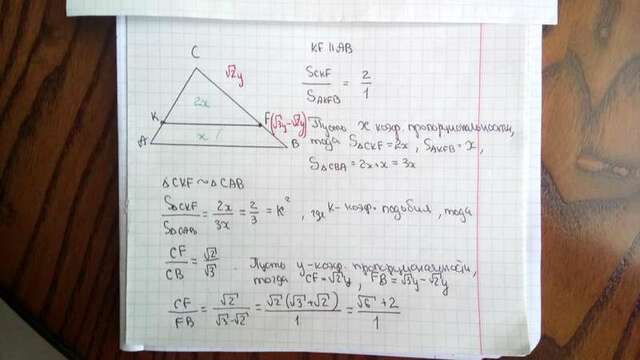 C
√2y
KF || AB
S_CKF / S_AKFB = 2 / 1
2x
K
F (√3y-√2y)
A
x
B
Пусть x коэф. пропорциональности,
тогда S△CKF = 2x, S_AKFB = x,
S△CBA = 2x+x = 3x
△CKF ~ △CAB
S△CKF / S△CAB = 2x / 3x = 2 / 3 = K², где K - коэф. подобия, тогда
CF / CB = √2 / √3. Пусть y - коэф. пропорциональности,
тогда CF = √2y, FB = √3y - √2y
CF / FB = √2 / (√3-√2) = √2(√3+√2) / 1 = (√6+2) / 1